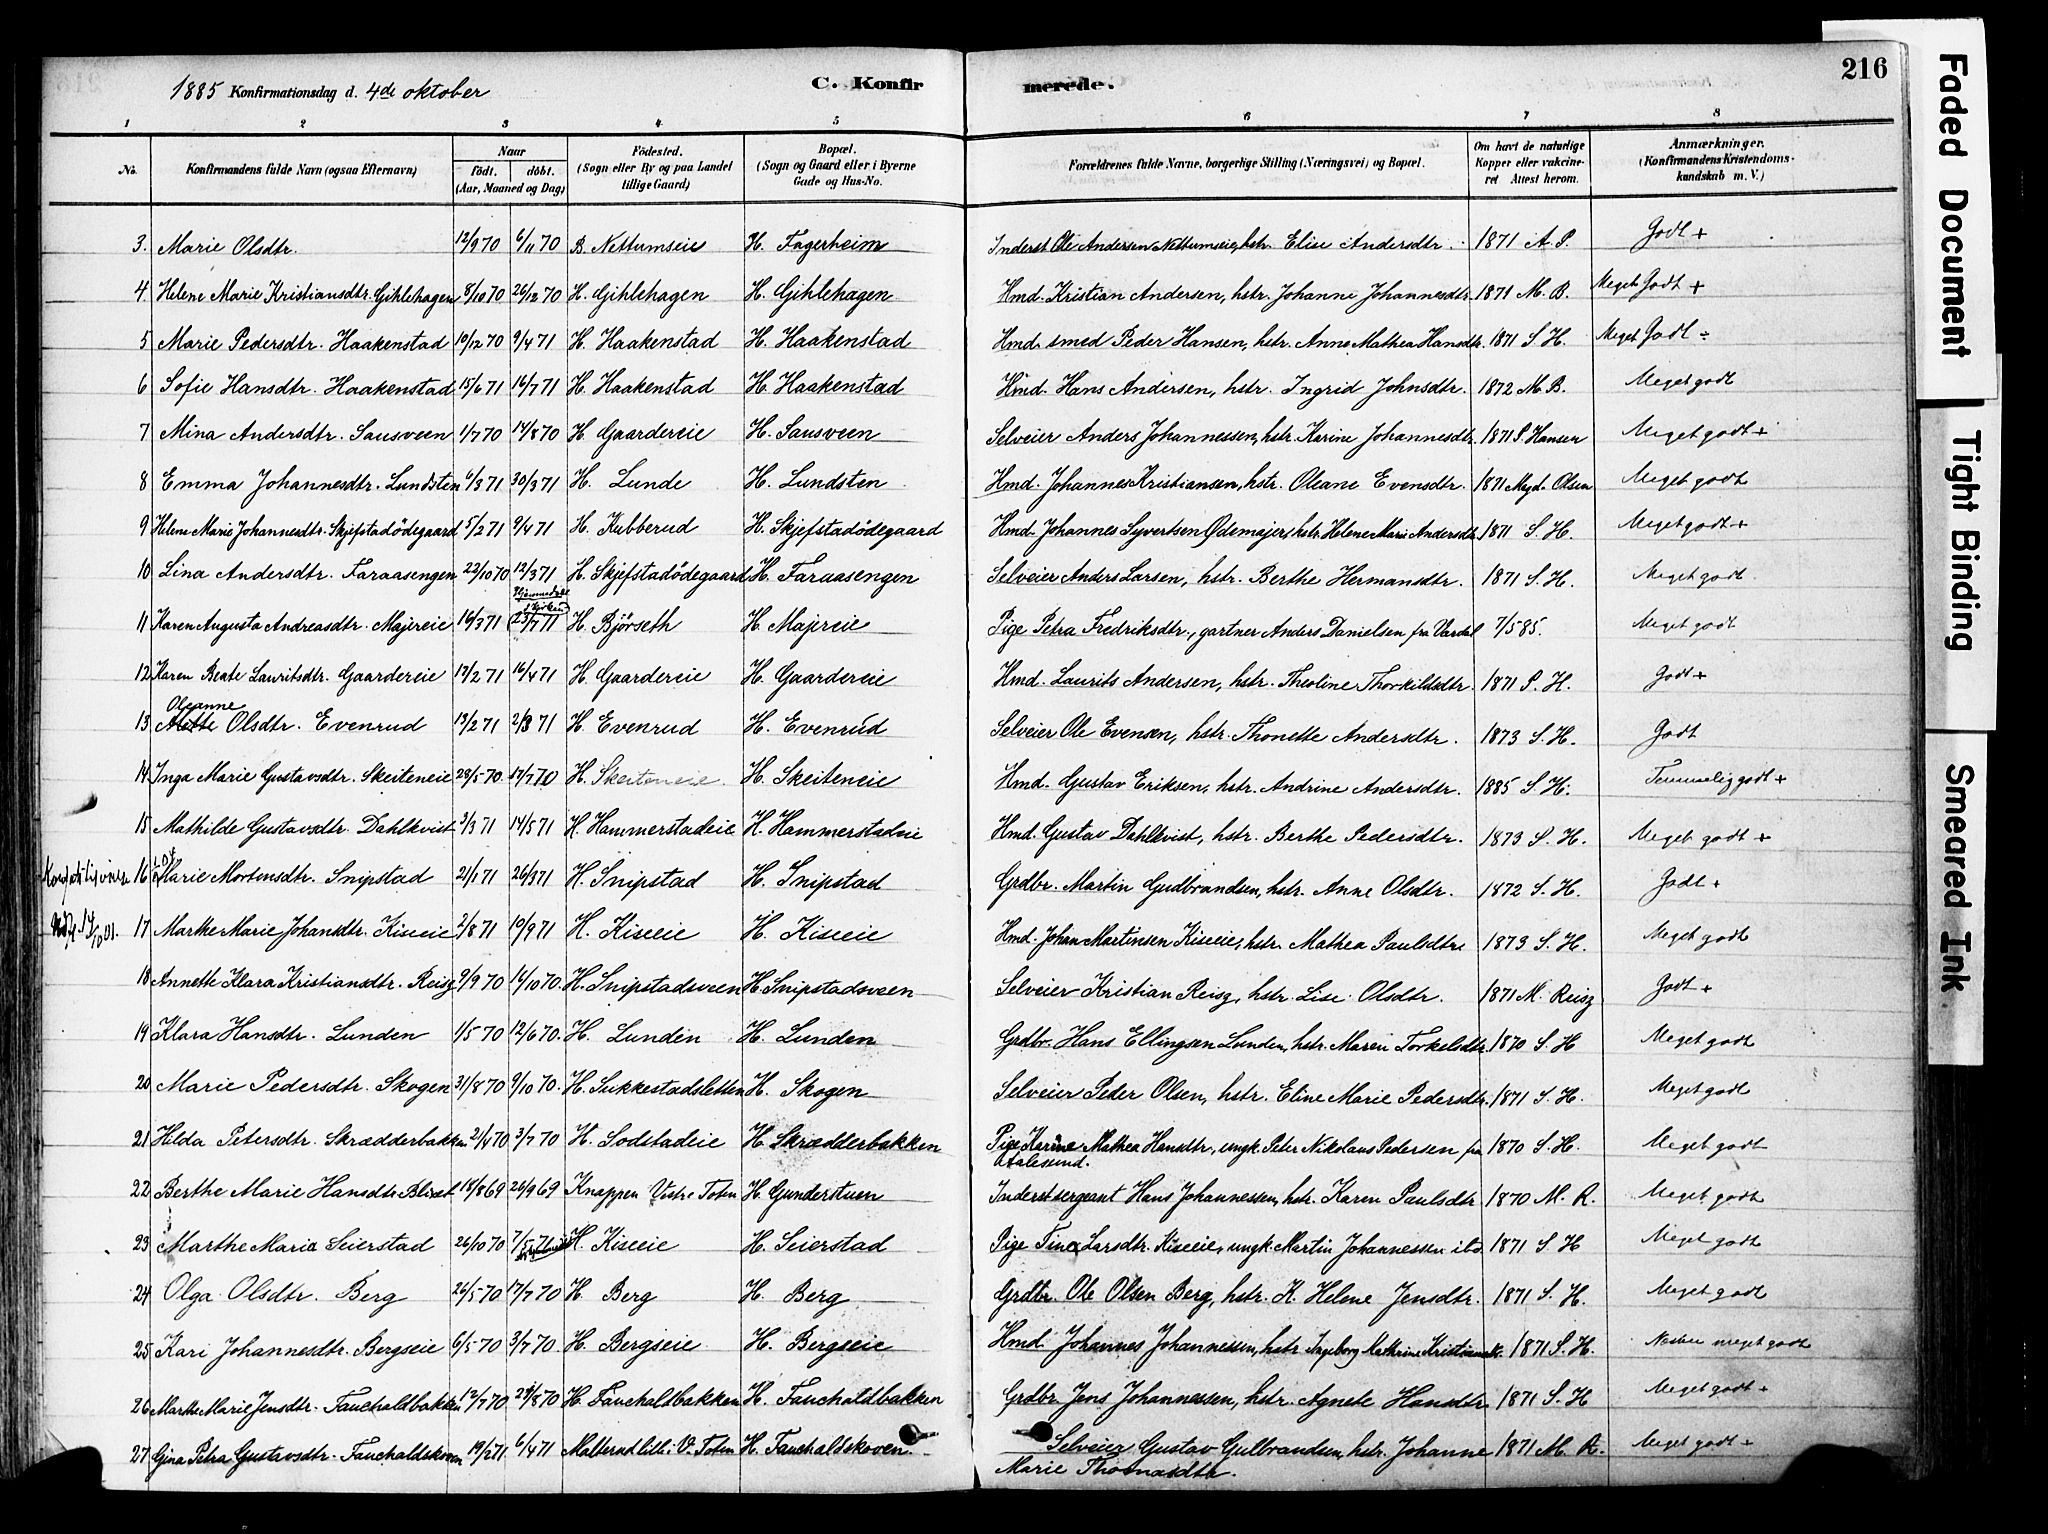 216
1885 Konfirmationsdag d. 4de oktober
C. Konfirmerede.
1 2 3 4 5 6 7 8
No. Konfirmandens fulde Navn (ogsaa Efternavn) Naar födt. döbt. (Aar, Maaned og Dag) Födested. (Sogn eller By og paa Landet tillige Gaard) Bopæl. (Sogn og Gaard eller i Byerne Gade og Hus-No. Forældrenes fulde Navne, borgerlige Stilling (Næringsvei) og Bopæl. Om havt de naturlige Kopper eller vakcineret Attest herom. Anmærkninger. (Konfirmandens Kristendomskundskab m. V.)
3. Marie Olsdtr. 12/9 70 6/11 70 B. Nettumseie H. Fagerheim Inderst Ole Andersen Nettumseie, hstr. Elise Andersdtr. 1871 A. P. Godt +
4 Helene Marie Kristiansdtr. Gihlehagen 8/10 70 26/12 70 H. Gihlehagen H. Gihlehagen Hmd. Kristian Andersen, hstr. Johanne Johannesdtr. 1871 M. B. Meget Godt +
5 Marie Pedersdtr. Haakenstad 10/12 70 9/4 71 H. Haakenstad H. Haakenstad Hmd. smed Peder Hansen, hstr. Anne Mathea Hansdtr. 1871 S. H. Meget Godt ÷
6 Sofie Hansdtr. Haakenstad 15/6 71 16/7 71 H. Haakenstad H. Haakenstad Hmd. Hans Andersen, hstr. Ingrid Johnsdtr. 1872 M. B. Meget godt
7 Mina Andersdtr. Sausveen 1/7 70 14/8 70 H. Gaardereie H. Sausveen Selveier Anders Johannessen, hstr. Karine Johannesdtr. 1871 S. Hansen Meget godt +
8 Emma Johannesdtr. Lundsten 6/3 71 30/3 71 H. Lunde H. Lundsten Hmd. Johannes Kristiansen, hstr. Oleane Evensdtr. 1871 Magd. Olsen Meget godt
9 Helene Marie Johannesdtr. Skjefstadödegaard 5/2 71 9/4 71 H. Kubberud H. Skjefstadödegaard Hmd. Johannes Syvertsen Ödemajer, hstr. Helene Marie Andersdtr. 1871 S. H. Meget godt +
10 Lina Andersdtr. Faraasengen 22/10 70 12/3 71 H. Skjefstadödegaard H. Faraasengen Selveier Anders Larsen, hstr. Berthe Hermansdtr. 1871 S. H. Meget godt
11 Karen Augusta Andreasdtr. Majereie 16/3 71 23/7 71 H. Björseth H. Majereie Pige Petra Fredriksdtr., gartner Anders Danielsen fra Vardal 7/5 85. Meget godt
12 Karen Beate Lauritsdtr. Gaardereie 17/2 71 16/4 71 H. Gaardereie H. Gaardereie Hmd. Laurits Andersen, hstr. Theoline Thorkildsdtr. 1871 S. H. Godt +
Oleanne
13 Mette Olsdtr. Evenrud 13/2 71 2/3 71 H. Evenrud H. Evenrud Selveier Ole Evensen, hstr. Thonette Andersdtr. 1873 S. H. Godt
14 Inga Marie Gustavsdtr. Skeiteneie 28/5 70. 17/7 70 H. Skeiteneie. H. Skeiteneie Hmd. Gustav Eriksen, hstr. Andrine Andersdtr. 1885 S. H. Temmelig godt +
15 Mathilde Gustavsdtr. Dahlkvist 3/3 71 14/5 71 H. Hammerstadeie H. Hammerstadeie Hmd. Gustav Dahlkvist, hstr. Berthe Pedersdtr. 1873 S. H. Meget godt +
16 Marie Mortensdtr. Snipstad 21/1 71 26/3 71 H. Snipstad H. Snipstad Grdbr. Martin Gudbrandsen, hstr. Anne Olsdtr. 1872 S. H. Godt +
17 Marthe Marie Johansdtr. Kiseeie 2/8 71 10/9 71 H. Kiseeie H. Kiseeie Hmd. Johan Martinsen Kiseeie, hstr. Mathea Paulsdtr. 1873 S. H. Meget godt
18 Annette Klara Kristiansdtr. Reisz 9/9 70 16/10 70. H. Snipstadsveen H. Snipstadsveen Selveier Kristian Reisz, hstr. Lise Olsdtr. 1871 M. Reisz Godt +
19 Klara Hansdtr. Lunden 1/5 70 12/6 70. H. Lunden H. Lunden Grdbr. Hans Ellingsen Lunden, hstr. Maren Torkelsdtr. 1870 S. H Meget godt
20 Marie Pedersdtr. Skogen 31/8 70 9/10 70. H. Sukkestadsletten H. Skogen Selveier Peder Olsen, hstr. Eline Marie Pedersdtr. 1871 S. H. Meget godt
21 Hilda Petersdtr. Skrædderbakken 2/4 70 3/7 70 H. Sodstadeie H. Skrædderbakken Pige Karine Mathea Hansdtr, ungk. Peter Nikolaus Pedersen fra Aalesund. 1870 S. H. Meget godt
22 Berthe Marie Hansdtr Blixet 14/8 69 26/9 69 Knappen Vestre Toten H. Gunderstuen Inderst sergeant Hans Johannessen, hstr. Karen Paulsdtr. 1870 M. R. Meget godt
23 Marthe Maria Seierstad 26/10 70 7/5 71 H. Kiseeie H. Seierstad Pige Tine Larsdtr. Kiseeie, ungk. Martin Johannessen ibd. 1871 S. H Meget godt
24 Olga Olsdtr. Berg 26/5 70 17/7 70 H. Berg H. Berg Grdbr. Ole Olsen Berg, hstr. K. Helene Jensdtr. 1871 S. H. Meget godt
25 Kari Johannesdtr. Bergseie 6/5 70 3/7 70 H. Bergseie H. Bergseie Hmd. Johannes Johannessen, hstr. Ingeborg Kathrine Kristiansdtr. 1871 S. H. Næsten meget godt
26 Marthe Marie Jensdtr. Fauchaldbakken 12/7 70 28/8 70 H. Fauchaldbakken H. Fauchaldbakken Grdbr. Jens Johannessen, hstr. Agnete Hansdtr 1871 S. H Meget godt +
27 Gina Petra Gustavsdtr. Fauchaldskoven 19/2 71 6/4 71 V. Toten H. Fauchaldskoven Selveier Gustav Gulbrandsen, hstr. Johanne Marie Thomasdtr. 1871 M. R. Meget godt +
Faded Document
Tight Binding
Smeared Ink